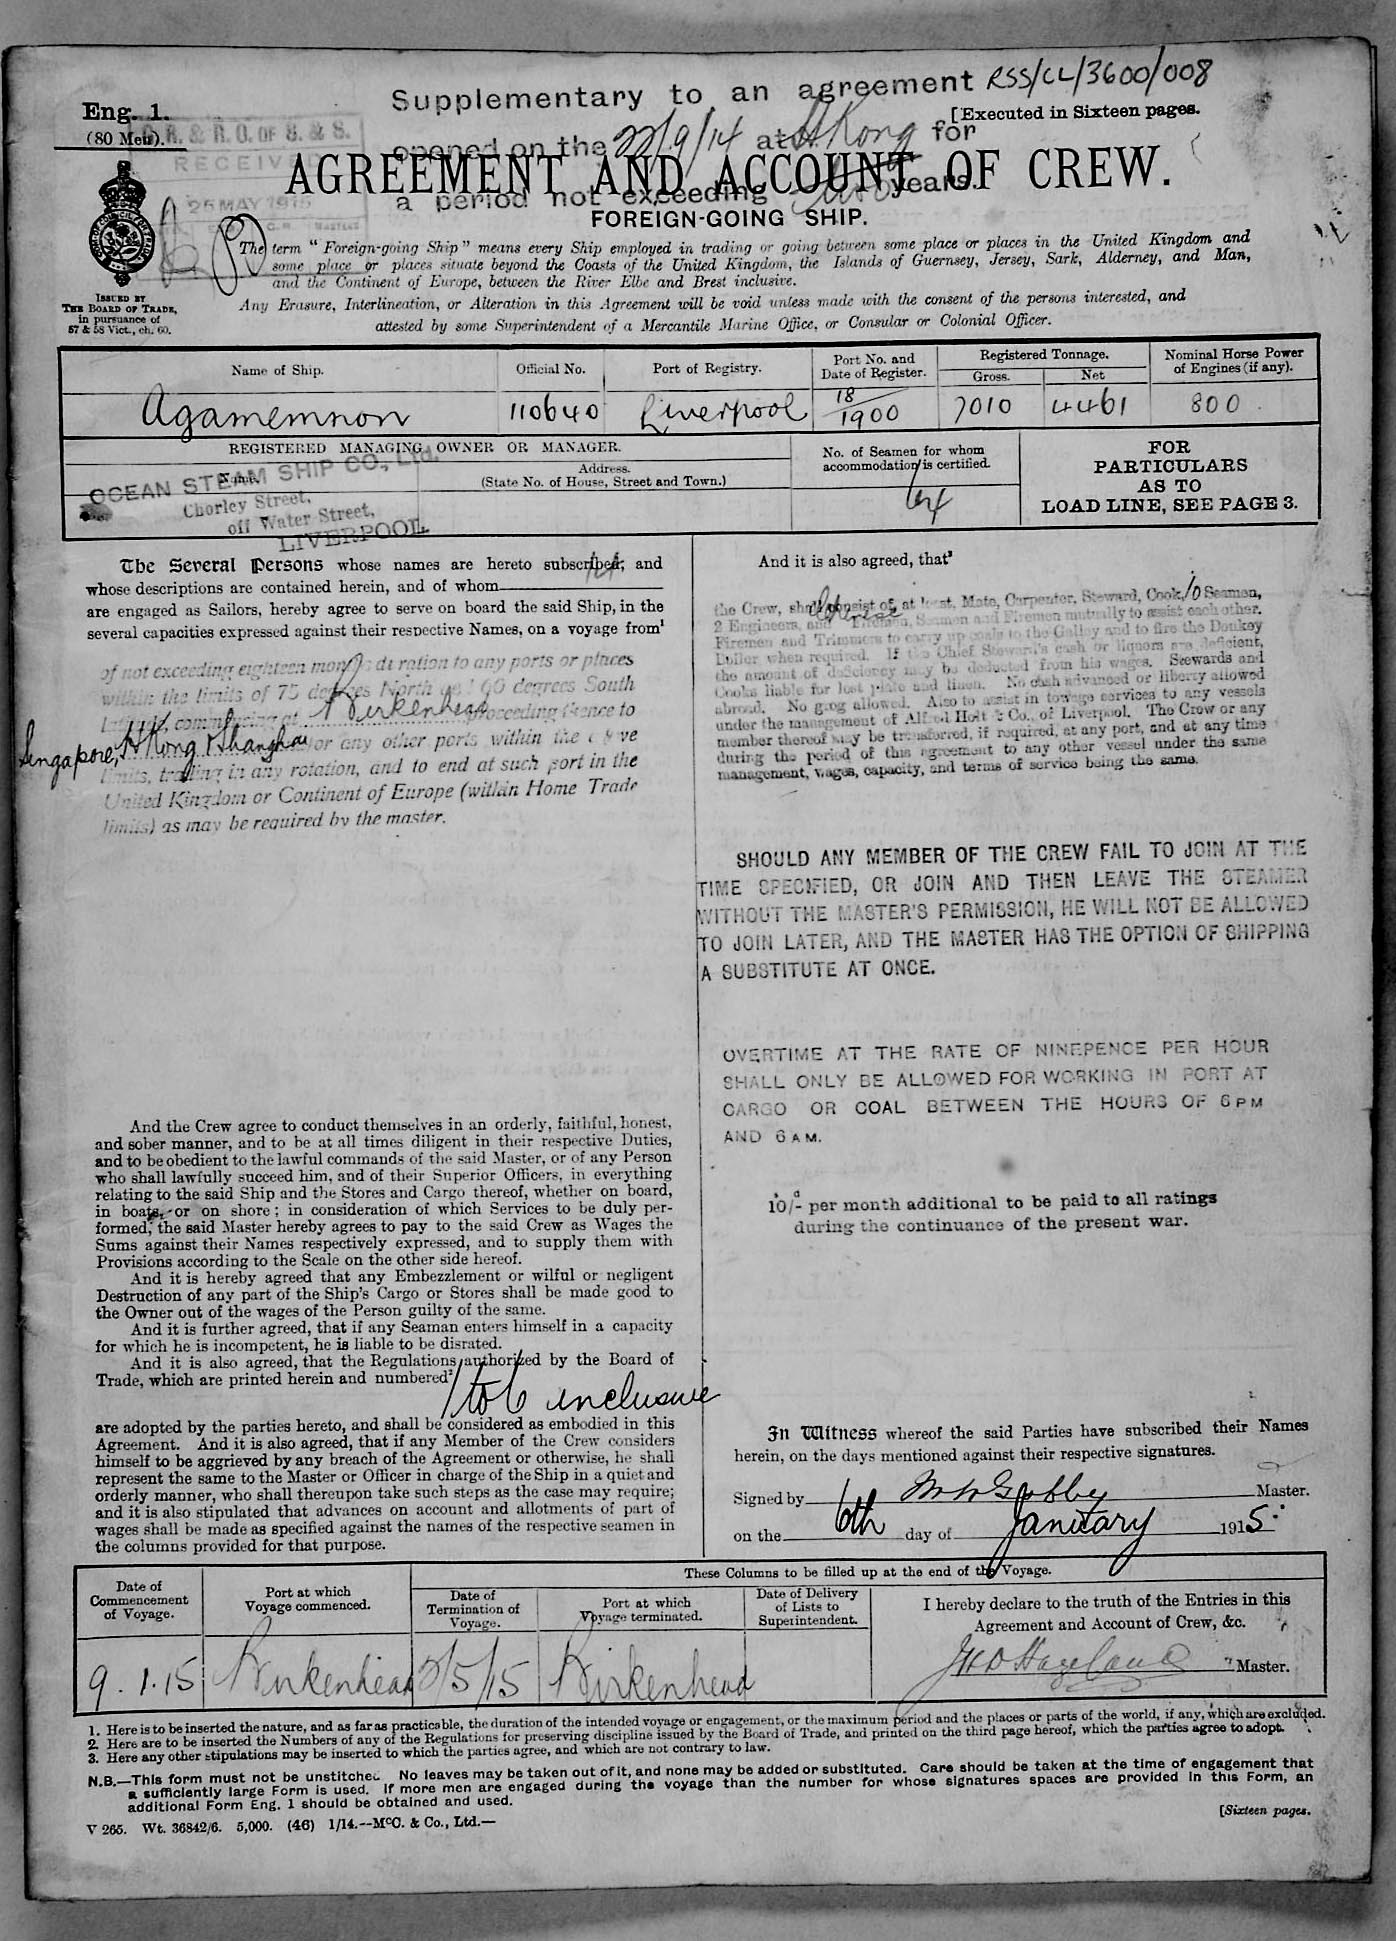 Supplementary to an agreement RSS/CL/3600/008
Eng. 1.
[Executed in Sixteen pages.
(80 Men).
& R. O. OF S. & S.
RECEIVED
25 MAY 1915
opened on the 22/9/14 at H Kong for
AGREEMENT AND ACCOUNT OF CREW.
a period not exceeding years.
FOREIGN-GOING SHIP.
The term "Foreign-going Ship" means every Ship employed in trading or going between some place or places in the United Kingdom and
some place or places situate beyond the Coasts of the United Kingdom, the Islands of Guernsey, Jersey, Sark, Alderney, and Man,
and the Continent of Europe, between the River Elbe and Brest inclusive.
Any Erasure, Interlineation, or Alteration in this Agreement will be void unless made with the consent of the persons interested, and
attested by some Superintendent of a Mercantile Marine Office, or Consular or Colonial Officer.
ISSUED BY
THE BOARD OF TRADE,
in pursuance of
57 & 58 Vict., ch. 60.
Name of Ship. Official No. Port of Registry. Port No. and Date of Register. Registered Tonnage. Gross. Net Nominal Horse Power of Engines (if any).
Agamemnon 110640 Liverpool 18/1900 7010 4461 800
REGISTERED MANAGING OWNER OR MANAGER.
Name. Address.
(State No. of House, Street and Town.)
OCEAN STEAM SHIP CO., Ltd.
Chorley Street,
off Water Street,
LIVERPOOL
No. of Seamen for whom
accommodation is certified.
64
FOR
PARTICULARS
AS TO
LOAD LINE, SEE PAGE 3.
The Several Persons whose names are hereto subscribed, and
whose descriptions are contained herein, and of whom
are engaged as Sailors, hereby agree to serve on board the said Ship, in the
several capacities expressed against their respective Names, on a voyage from¹
of not exceeding eighteen months duration to any ports or places
within the limits of 75 degrees North and 60 degrees South
Latitude, commencing at Birkenhead proceeding thence to
Singapore, H Kong & Shanghai /or any other ports within the above
limits, trading in any rotation, and to end at such port in the
United Kingdom or Continent of Europe (within Home Trade
limits) as may be required by the master.
And the Crew agree to conduct themselves in an orderly, faithful, honest,
and sober manner, and to be at all times diligent in their respective Duties,
and to be obedient to the lawful commands of the said Master, or of any Person
who shall lawfully succeed him, and of their Superior Officers, in everything
relating to the said Ship and the Stores and Cargo thereof, whether on board,
in boats, or on shore; in consideration of which Services to be duly per-
formed, the said Master hereby agrees to pay to the said Crew as Wages the
Sums against their Names respectively expressed, and to supply them with
Provisions according to the Scale on the other side hereof.
And it is hereby agreed that any Embezzlement or wilful or negligent
Destruction of any part of the Ship's Cargo or Stores shall be made good to
the Owner out of the wages of the Person guilty of the same.
And it is further agreed, that if any Seaman enters himself in a capacity
for which he is incompetent, he is liable to be disrated.
And it is also agreed, that the Regulations authorized by the Board of
Trade, which are printed herein and numbered²
1 to 6 inclusive
are adopted by the parties hereto, and shall be considered as embodied in this
Agreement. And it is also agreed, that if any Member of the Crew considers
himself to be aggrieved by any breach of the Agreement or otherwise, he shall
represent the same to the Master or Officer in charge of the Ship in a quiet and
orderly manner, who shall thereupon take such steps as the case may require;
and it is also stipulated that advances on account and allotments of part of
wages shall be made as specified against the names of the respective seamen in
the columns provided for that purpose.
And it is also agreed, that³
the Crew, shall consist of, at least, Mate, Carpenter, Steward, Cook, 10 Seamen,
2 Engineers, and Chinese Firemen, Seamen and Firemen mutually to assist each other.
Firemen and Trimmers to carry up coals to the Galley and to fire the Donkey
Boiler when required. If the Chief Steward's cash or liquors are deficient,
the amount of deficiency may be deducted from his wages. Stewards and
Cooks liable for lost plate and linen. No cash advanced or liberty allowed
abroad. No grog allowed. Also to assist in towage services to any vessels
under the management of Alfred Holt & Co., of Liverpool. The Crew or any
member thereof may be transferred, if required, at any port, and at any time
during the period of this agreement to any other vessel under the same
management, wages, capacity, and terms of service being the same.
SHOULD ANY MEMBER OF THE CREW FAIL TO JOIN AT THE
TIME SPECIFIED, OR JOIN AND THEN LEAVE THE STEAMER
WITHOUT THE MASTER'S PERMISSION, HE WILL NOT BE ALLOWED
TO JOIN LATER, AND THE MASTER HAS THE OPTION OF SHIPPING
A SUBSTITUTE AT ONCE.
OVERTIME AT THE RATE OF NINEPENCE PER HOUR
SHALL ONLY BE ALLOWED FOR WORKING IN PORT AT
CARGO OR COAL BETWEEN THE HOURS OF 6 PM
AND 6 AM.
10/- per month additional to be paid to all ratings
during the continuance of the present war.
In Witness whereof the said Parties have subscribed their Names
herein, on the days mentioned against their respective signatures.
Signed by Master.
on the 6th day of January 1915
These Columns to be filled up at the end of the Voyage.
Date of Commencement of Voyage. Port at which Voyage commenced. Date of Termination of Voyage. Port at which Voyage terminated. Date of Delivery of Lists to Superintendent.
I hereby declare to the truth of the Entries in this
Agreement and Account of Crew, &c.
9.1.15 Birkenhead /5/15 Birkenhead Master.
1. Here is to be inserted the nature, and as far as practicable, the duration of the intended voyage or engagement, or the maximum period and the places or parts of the world, if any, which are excluded.
2. Here are to be inserted the Numbers of any of the Regulations for preserving discipline issued by the Board of Trade, and printed on the third page hereof, which the parties agree to adopt.
3. Here any other stipulations may be inserted to which the parties agree, and which are not contrary to law.
N.B.—This form must not be unstitched. No leaves may be taken out of it, and none may be added or substituted. Care should be taken at the time of engagement that
a sufficiently large Form is used. If more men are engaged during the voyage than the number for whose signatures spaces are provided in this Form, an
additional Form Eng. 1 should be obtained and used.
[Sixteen pages.
V 265. Wt. 36842/6. 5,000. (46) 1/14.--McC. & Co., Ltd.—